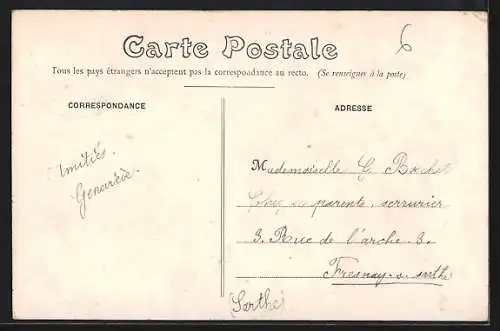 Carte Postale
6
Tous les pays étrangers n'acceptent pas la correspondance au recto. (Se renseigner à la poste)
CORRESPONDANCE
Amitiés.
ADRESSE
Mademoiselle G.
Chez ses parents, serrurier
3. Rue de l'arche. 3.
Fresnay. s. sarthe
(Sarthe)